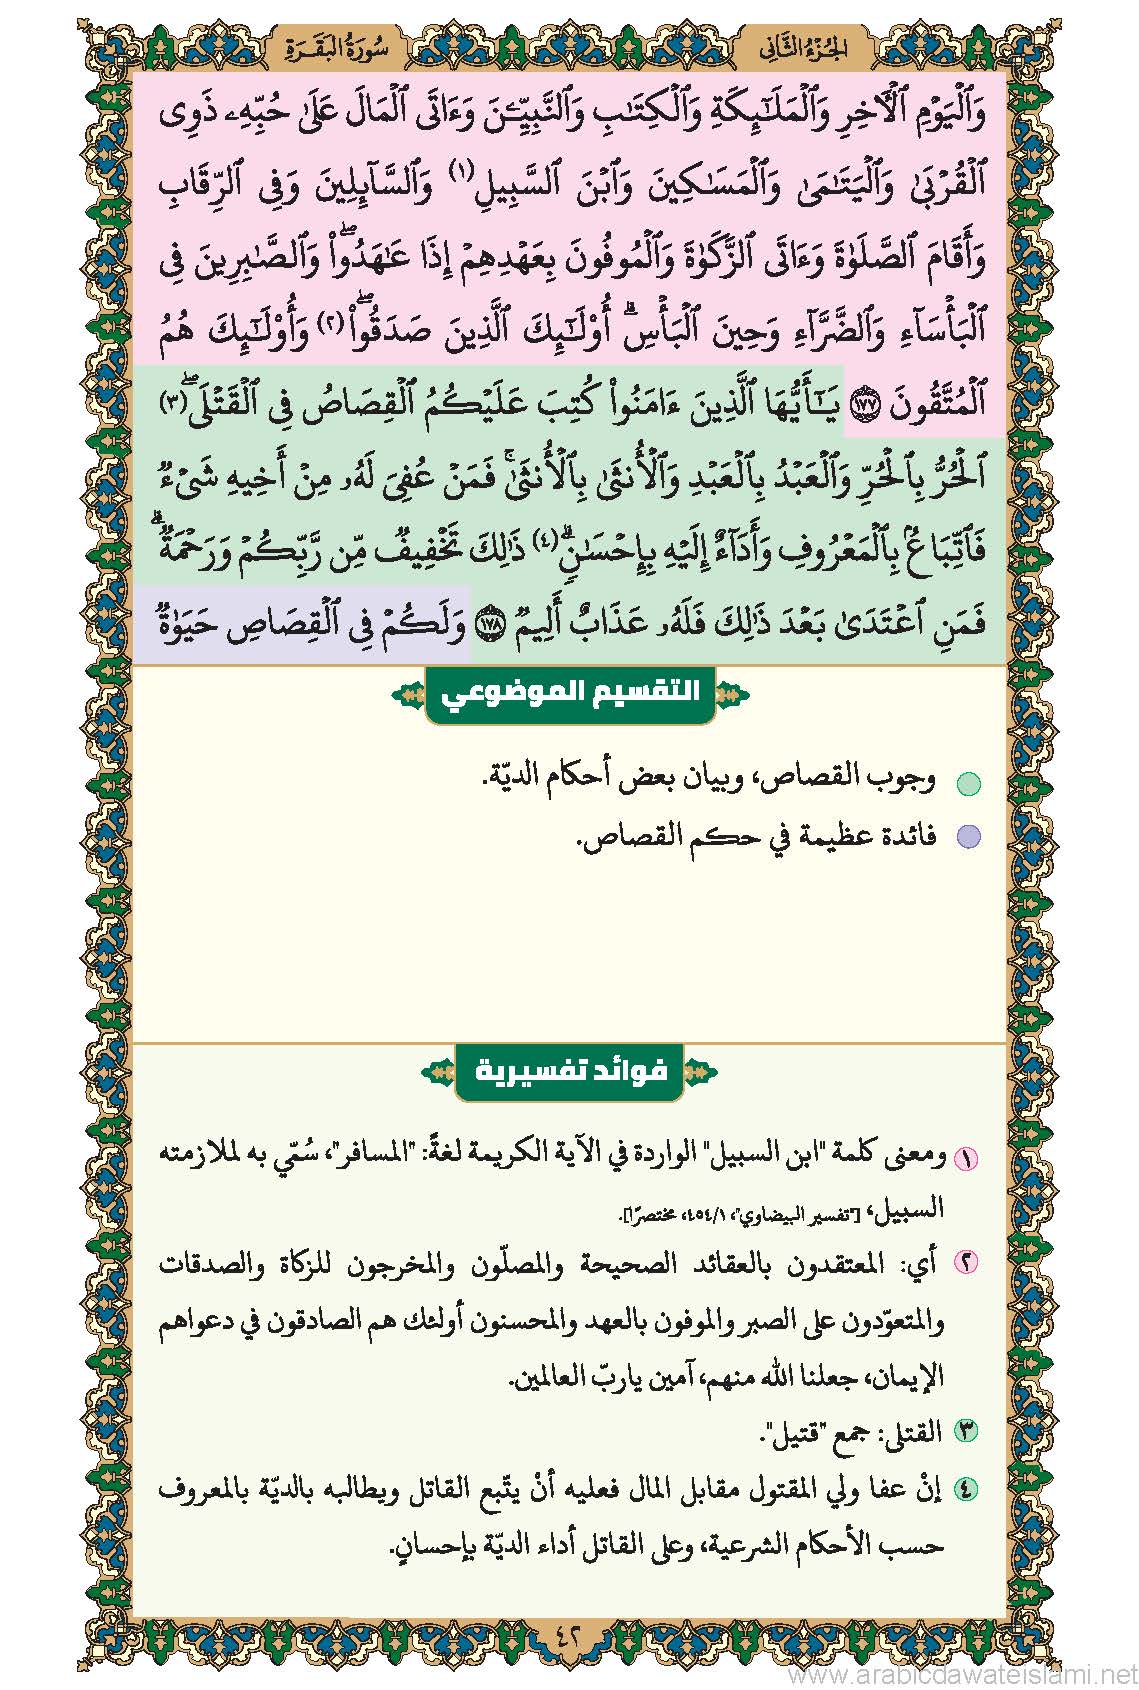 الجُزْءُ الثَّانِي
سُورَةُ البَقَرَةِ
وَٱلْيَوْمِ ٱلْـَٔاخِرِ وَٱلْمَلَـٰٓئِكَةِ وَٱلْكِتَـٰبِ وَٱلنَّبِيِّـۧنَ وَءَاتَى ٱلْمَالَ عَلَىٰ حُبِّهِۦ ذَوِى
ٱلْقُرْبَىٰ وَٱلْيَتَـٰمَىٰ وَٱلْمَسَـٰكِينَ وَٱبْنَ ٱلسَّبِيلِ(١) وَٱلسَّآئِلِينَ وَفِى ٱلرِّقَابِ
وَأَقَامَ ٱلصَّلَوٰةَ وَءَاتَى ٱلزَّكَوٰةَ وَٱلْمُوفُونَ بِعَهْدِهِمْ إِذَا عَـٰهَدُوا۟ۖ وَٱلصَّـٰبِرِينَ فِى
ٱلْبَأْسَآءِ وَٱلضَّرَّآءِ وَحِينَ ٱلْبَأْسِۗ أُو۟لَـٰٓئِكَ ٱلَّذِينَ صَدَقُوا۟ۖ(٢) وَأُو۟لَـٰٓئِكَ هُمُ
ٱلْمُتَّقُونَ ١٧٧ يَـٰٓأَيُّهَا ٱلَّذِينَ ءَامَنُوا۟ كُتِبَ عَلَيْكُمُ ٱلْقِصَاصُ فِى ٱلْقَتْلَىۖ(٣)
ٱلْحُرُّ بِٱلْحُرِّ وَٱلْعَبْدُ بِٱلْعَبْدِ وَٱلْأُنثَىٰ بِٱلْأُنثَىٰۚ فَمَنْ عُفِىَ لَهُۥ مِنْ أَخِيهِ شَىْءٌ
فَٱتِّبَاعٌۢ بِٱلْمَعْرُوفِ وَأَدَآءٌ إِلَيْهِ بِإِحْسَـٰنٍۗ(٤) ذَٰلِكَ تَخْفِيفٌ مِّن رَّبِّكُمْ وَرَحْمَةٌۗ
فَمَنِ ٱعْتَدَىٰ بَعْدَ ذَٰلِكَ فَلَهُۥ عَذَابٌ أَلِيمٌ ١٧٨ وَلَكُمْ فِى ٱلْقِصَاصِ حَيَوٰةٌ
التقسيم الموضوعي
وجوب القصاص، وبيان بعض أحكام الديّة.
فائدة عظيمة في حكم القصاص.
فوائد تفسيرية
١ ومعنى كلمة "ابن السبيل" الواردة في الآية الكريمة لغةً: "المسافر"، سُمّي به لملازمته
السبيل، ["تفسير البيضاوي"، ٤٥٤/١، مختصرًا].
٢ أي: المعتقدون بالعقائد الصحيحة والمصلّون والمخرجون للزكاة والصدقات
والمتعوّدون على الصبر والموفون بالعهد والمحسنون أولئك هم الصادقون في دعواهم
الإيمان، جعلنا الله منهم، آمين ياربّ العالمين.
٣ القتلى: جمع "قتيل".
٤ إنْ عفا ولي المقتول مقابل المال فعليه أنْ يتّبع القاتل ويطالبه بالديّة بالمعروف
حسب الأحكام الشرعية، وعلى القاتل أداء الديّة بإحسانٍ.
٤٢
www.arabicdawateislami.net